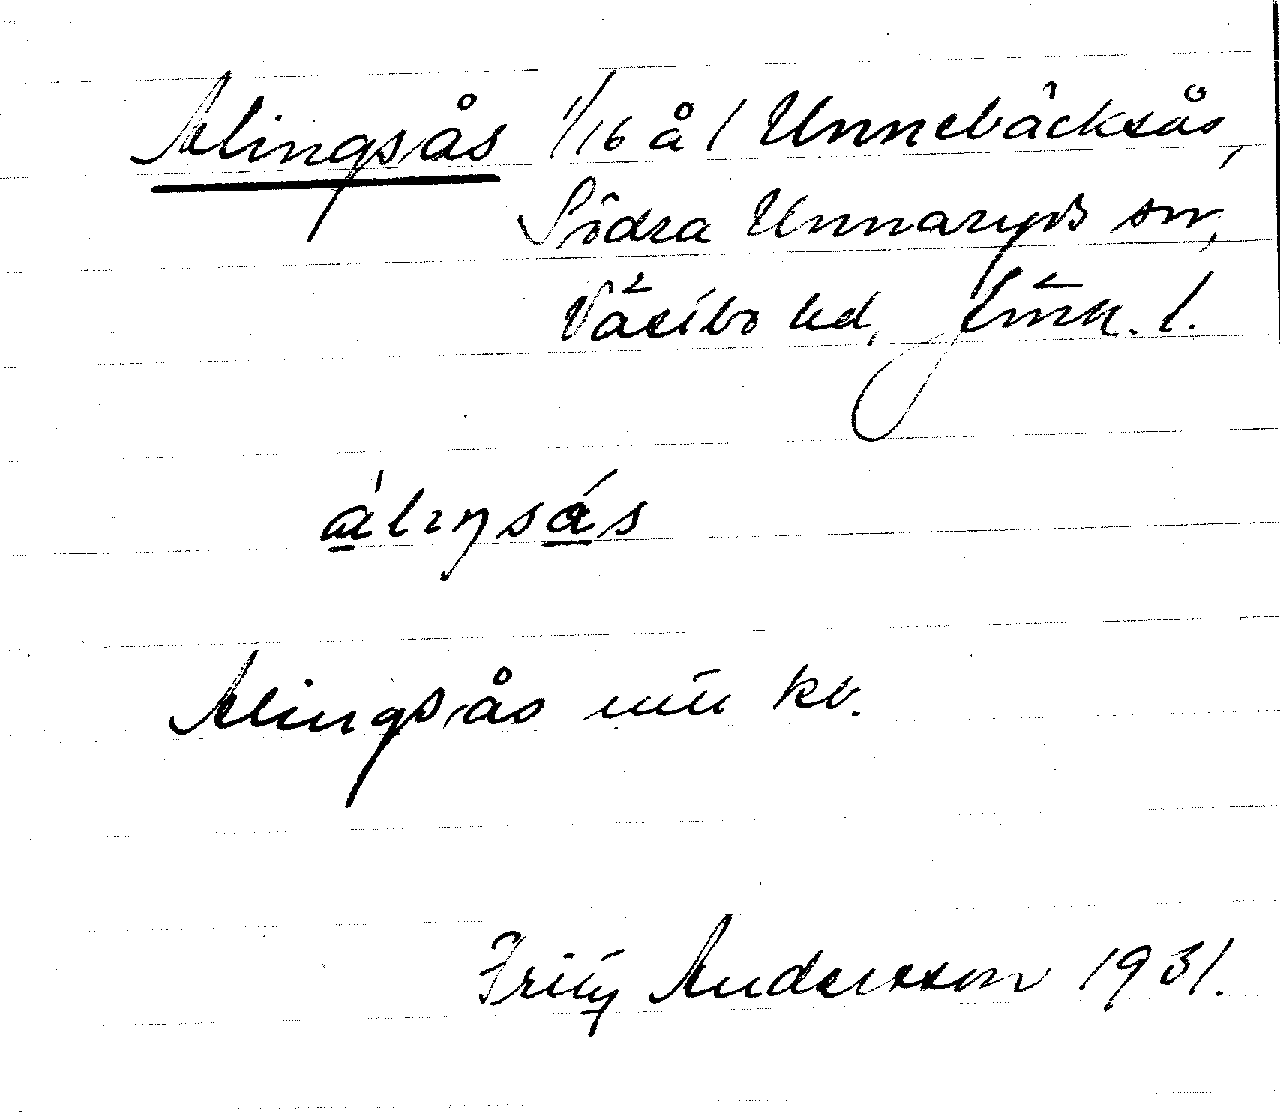 Alingsås 1/16 å 1 Unnebäcksås,
Södra Unnaryds sn,
Västbo hd, Jönk. l.
álıŋsás
Alingsås min kb.
Fritz Andersson 1931.